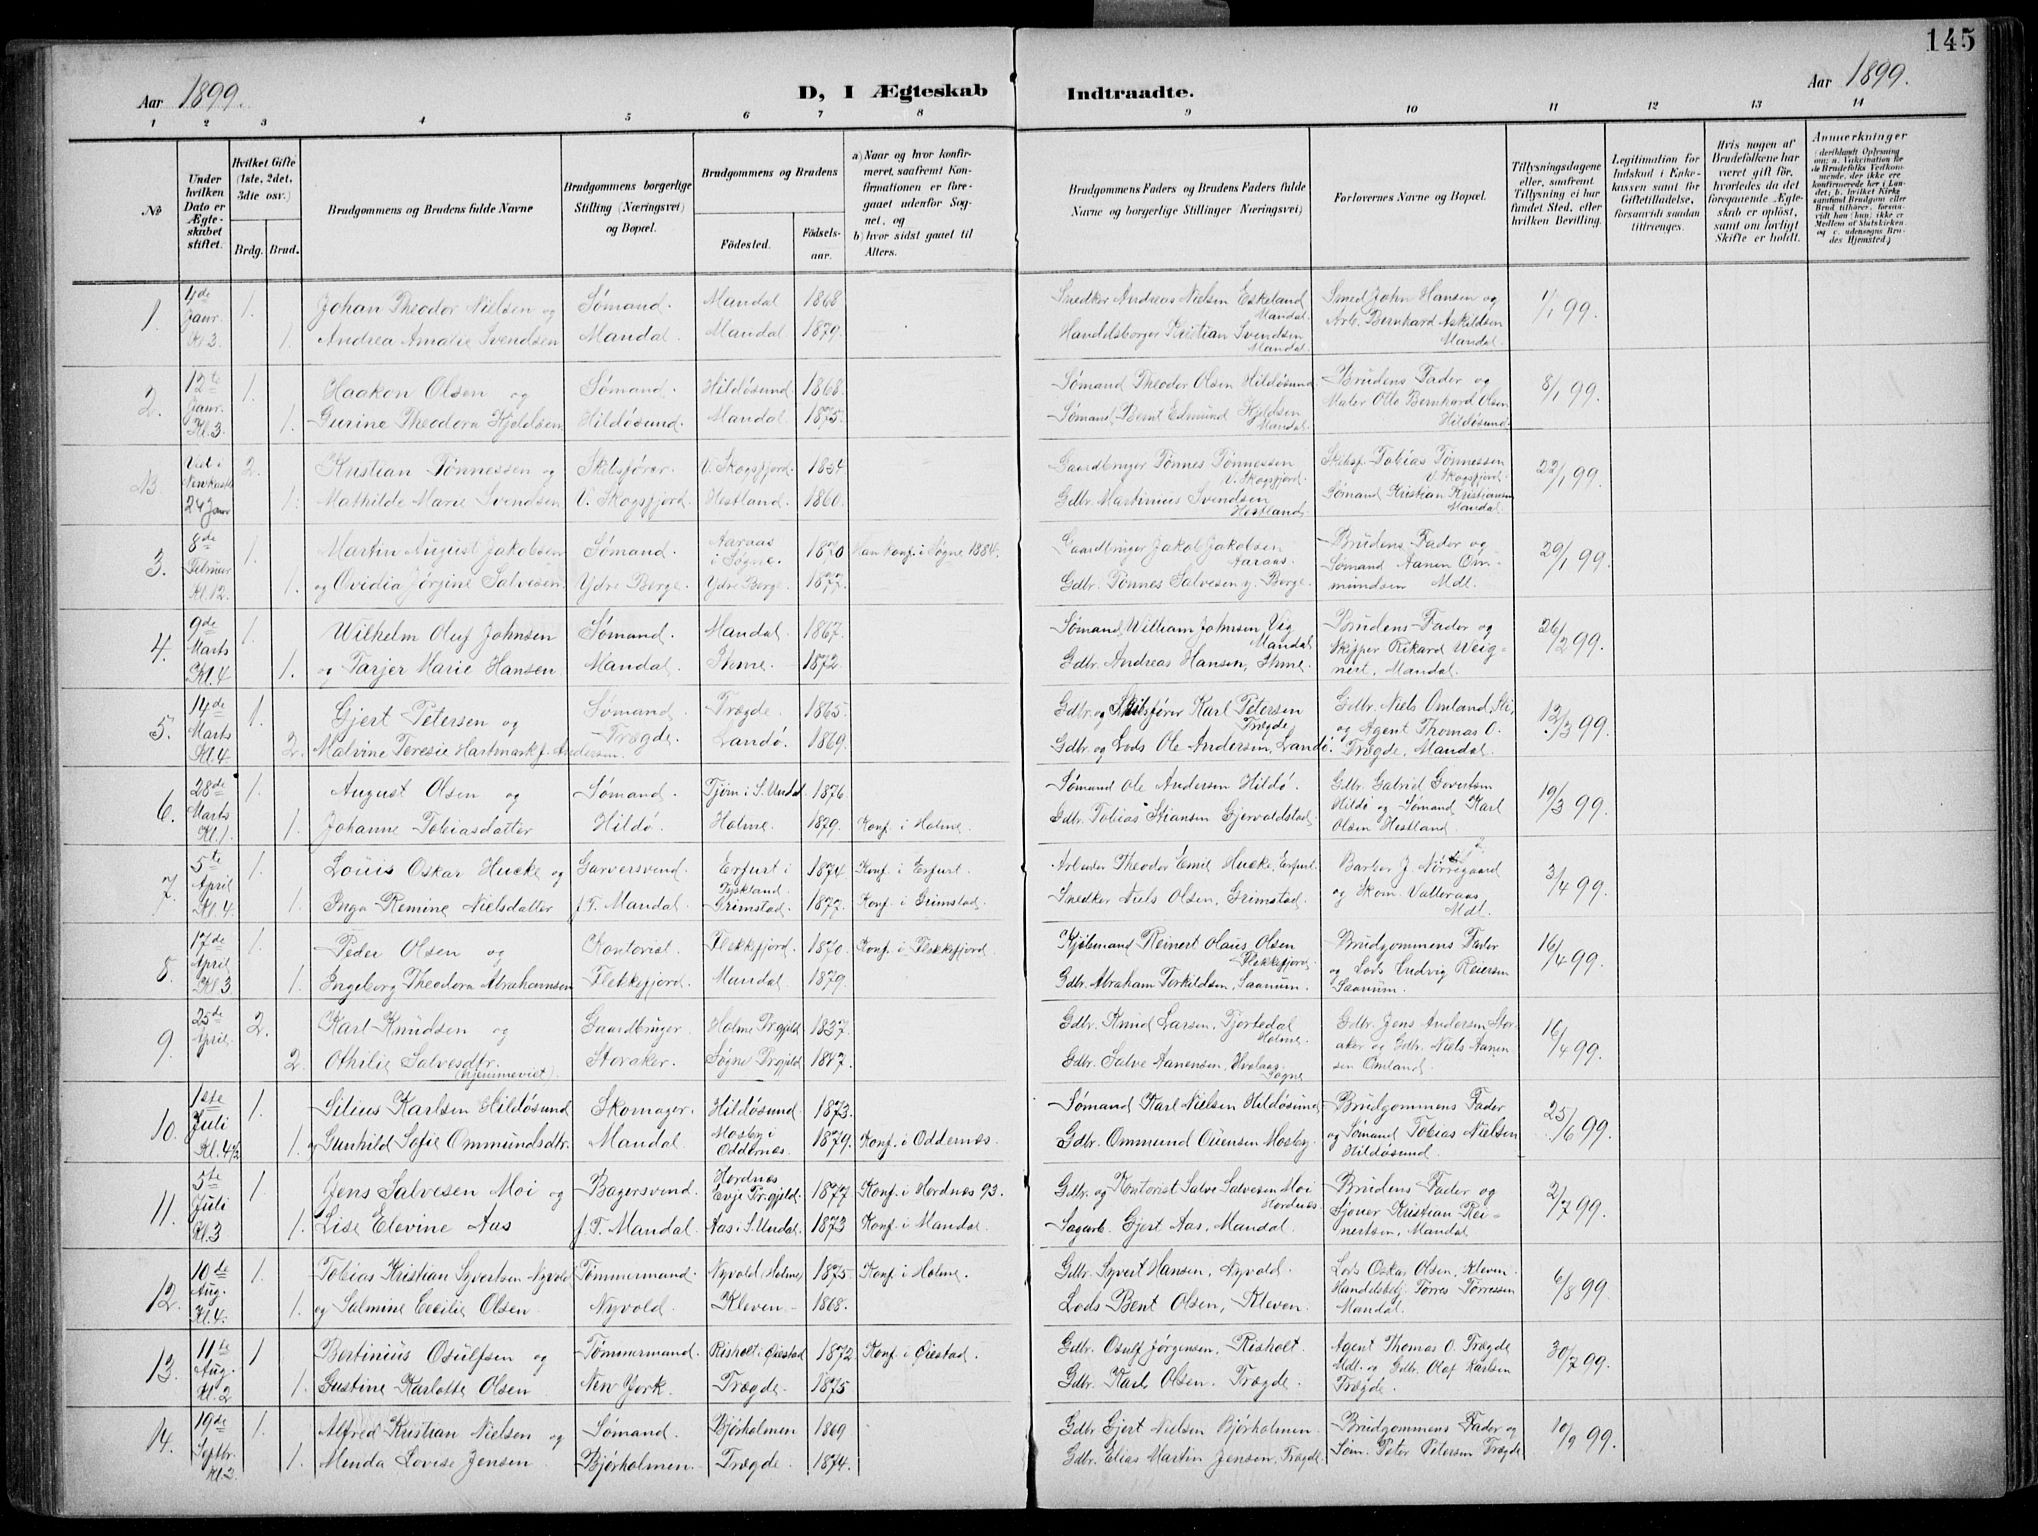 145
Aar 1899.
D, I Ægteskab Indtraadte.
Aar 1899.
1 2 3 4 5 6 7 8 9 10 11 12 13 14
No
Under hvilken Dato er Ægteskabet stiftet.
Hvilket Gifte (1ste, 2det, 3die osv.)
Brdg. Brud.
Brudgommens og Brudens fulde Navne
Brudgommens borgerlige Stilling (Næringsvei) og Bopæl.
Brudgommens og Brudens
Födested. Födselsaar.
a) Naar og hvor konfirmeret, saafremt Konfirmationen er foregaaet udenfor Sognet, og
b) hvor sidst gaaet til Alters.
Brudgommens Faders og Brudens Faders fulde Navne og borgerlige Stillinger (Næringsvei)
Forlovernes Navne og Bopæl.
Tillysningsdagene eller, saafremt Tillysning ei har fundet Sted, efter hvilken Bevilling.
Legitimation for Indskud i Enkekassen samt for Giftetilladelse, forsaavidt saadan tiltrænges.
Hvis nogen af Brudefolkene har været gift før, hvorledes da det foregaaende Ægteskab er oplöst, samt om lovligt Skifte er holdt.
Anmærkninger
1. 4de Janr. Kl 3. 1. Johan Theodor Nielsen og Sømand. Mandal 1868 Snedker Andreas Nielsen Eskeland Mandal. Smed John Hansen og 1/1 99.
1. Andrea Amalie Svendsen Mandal. Mandal 1879. Handelsborger Kristian Svendsen Mandal Arb. Bernhard Askildsen Mandal.
2. 12te Janr. Kl. 3. 1. Haakon Olsen og Sømand. Hildøsund 1868. Sømand Theodor Olsen Hildøsund. Brudens Fader og 8/1 99.
1. Gurine Theodora Kjeldsen Hildøsund. Mandal 1875. Sømand Bernt Edmund Kjeldsen Mandal. Maler Otto Bernhard Olsen Hildøsund.
24 Janr 2. Kristian Tønnessen og Skibsfører. V. Skogsfjord. 1834 Gaardbruger Tønnes Tønnessen V. Skogsfjord. Skibsf. Tobias Tønnessen V. Skogsfjord. 22/1 99.
1. Mathilde Marie Svendsen V. Skogsfjord. Hestland. 1860. Gdbr. Martinius Svendsen Hestland Sømand Kristian Kristiansen Mandal.
3. 8de Februar Kl. 12. 1. Martin August Jakobsen Sømand. Aaraas i Søgne. 1870 Han konf. i Søgne 1884. Gaardbruger Jakob Jakobsen Aaraas. Brudens Fader og 29/1 99.
1. og Ovidia Jørgine Salvesen. Ydre Berge. Ydre Berge. 1877. Gdbr. Tønnes Salvesen y. Berge. Sømand Aanen Ommundsen Mdl.
4. 9de Marts Kl. 4 1. Wilhelm Oluf Johnsen Sømand. Mandal. 1867. Sømand William Johnsen Vig Mandal Brudens Fader og 26/2 99.
1. og Tarjer Marie Hansen Mandal. Ihme. 1872. Gdbr. Andreas Hansen, Ihme. Skipper Rikard Weignert, Mandal.
5. 14de Marts Kl. 4. 1. Gjert Petersen og Sømand. Trægde. 1865. Gdbr. og Skibsfører Karl Petersen Trægde. Gdbr. Niels Omland, 12/3 99.
2. Malvine Teresie Hartmark f. Andersen. Trægde. Landø. 1869. Gdbr. og Lods Ole Andersen, Landø. og Agent Thomas O. Trægde, Mandal.
6. 28de Marts Kl. 1. 1. August Olsen og Sømand. Tjøm i S. Undal 1876 Sømand Ole Andersen Hildø. Gdbr. Gabriel Govertsen Hildø og Sømand Karl Olsen Hestland. 19/3 99.
1. Johanne Tobiasdatter Hildø. Holme. 1879. Konf. i Holme. Gdbr. Tobias Stiansen Gjervoldstad.
7. 5te April Kl. 4. 1. Louis Oskar Hucke og Garversvend. Erfurt i Tyskland 1874 Konf. i Erfurt. Arbeider Theodor Emil Hucke, Erfurt. Barber J. Nørregaard 3/4 99.
1. Inga Remine Nielsdatter f. T. Mandal. Grimstad. 1877. Konf. i Grimstad. Snedker Niels Olsen, Grimstad. og Skom. Valleraas Mdl.
8. 17de April Kl 3 1. Peder Olsen og Kontorist. Flekkefjord. 1870. Konf. i Flekkefjord. Kjøbmand Reinert Olaus Olsen Flekkefjord. Brudgommens Fader 16/4 99.
1. Ingeborg Theodora Abrahamsen Flekkefjord. Mandal 1879. Gdbr. Abraham Torkildsen, Saanum. og Lods Ludvig Reiersen Saanum.
9. 25de April. 2. Karl Knudsen og Gaardbruger Holme Pr.gjeld 1837. Gdbr. Knud Larsen, Fjortedal Holme. Gdbr. Jens Andersen Storaker og Gdbr. Niels Aanensen Omland. 16/4 99.
2. Othilie Salvesdtr. (hjemmeviet). Storaker. Søgne Pr.gjeld 1847. Gdbr. Salve Aanensen, Søgne
10. 1ste Juli Kl. 4½ 1. Silius Karlsen Hildøsund Skomager. Hildøsund. 1873. Sømand Karl Nielsen Hildøsund Brudgommens Fader 25/6 99.
1. og Gunhild Sofie Ommundsdtr. Mandal. Mosby i Oddernæs. 1879. Konf. i Oddernæs. Gdbr. Ommund Ouensen Mosby. og Sømand Tobias Nielsen Hildøsund.
11. 5te Juli Kl. 3 1. Jens Salvesen Moi og Bagersvend. Hordnæs Evje Pr.gjeld. 1877. Konf. i Hordnæs 93. Gdbr. og Kontorist Salve Salvesen Moi Hordnæs. Brudens Fader og 2/7 99.
1. Lise Elevine Aas f. T. Mandal. Aas i S. Undal. 1873 Konf. i Mandal. Sagarb. Gjert Aas, Mandal. Sjøuer Kristian Reinertsen, Mandal
12. 10de Aug. Kl. 4. 1. Tobias Kristian Syvertsen Nyvold Tømmermand. Nyvold (Holme) 1875. Konf. i Holme. Gdbr. Syvert Hansen, Nyvold. Lods Oskar Olsen, Kleven. 6/8 99.
1. og Salmine Cecilie Olsen. Nyvold. Kleven. 1868. Lods Bent Olsen, Kleven. Handelsbetj. Tørres Tørressen Mandal.
13. 11te Aug. Kl. 2 1 Bertinius Osulfsen og Tømmermand. Risholt i Øiestad 1872 Konf. i Øiestad. Gdbr. Osulf Jørgensen, Risholt. Agent Thomas O. Trægde 30/7 99.
1. Gustine Karlotte Olsen New York. Trægde. 1875 Gdbr. Karl Olsen, Trægde. Mdl. og Gdbr. Olaf Karlsen Trægde.
14. 19de Septbr. Kl. 3 1. Alfred Kristian Nielsen og Sømand. Bjørholmen 1869 Gdbr. Gjert Nielsen Bjørholmen. Brudgommens Fader og 10/9 99.
1. Menda Lovise Jensen Bjørholmen. Trægde. 1874. Gdbr. Elias Martin Jensen, Trægde Søm. Peter Petersen Trægde